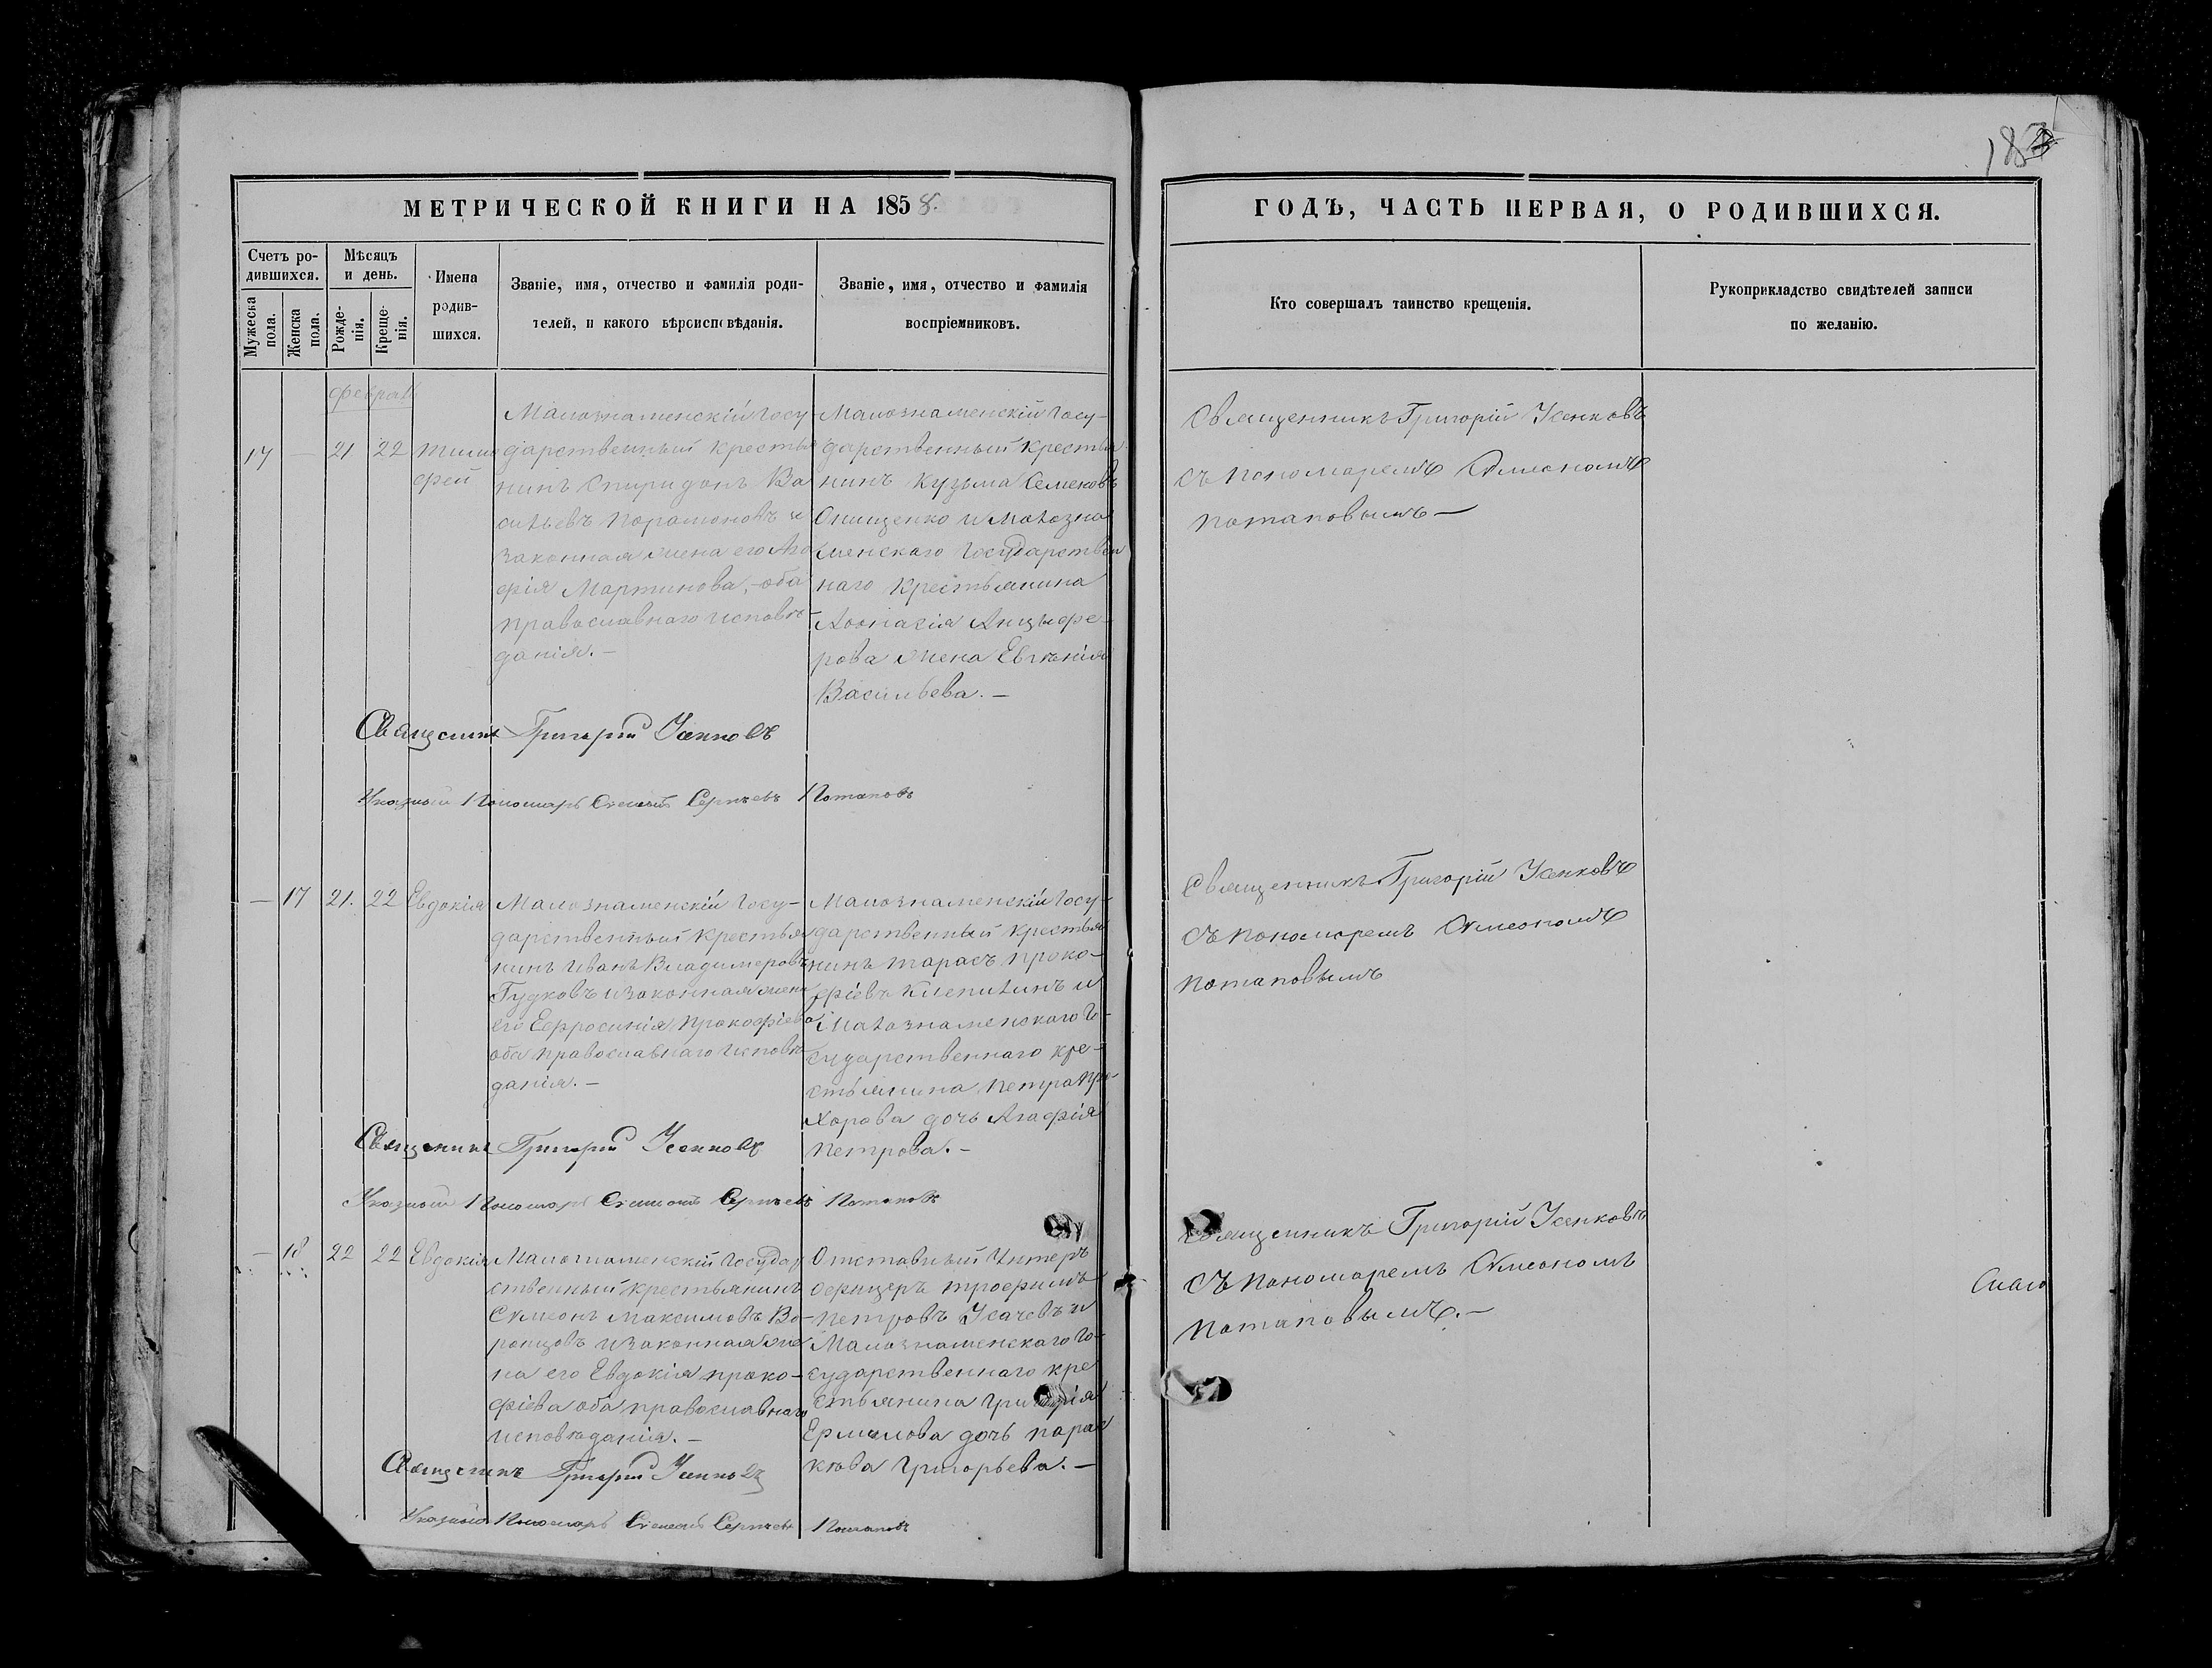 183
МЕТРИЧЕСКОЙ КНИГИ НА 1858.
ГОДЪ, ЧАСТЬ ПЕРВАЯ, О РОДИВШИХСЯ.
Счетъ ро-
дившихся.
Мужеска
пола.
Женска
пола.
Мѣсяцъ
и день.
Рожде-
нія.
Креще-
нія.
Имена
родив-
шихся.
Званіе, имя, отчество и фамилія роди-
телей, и какого вѣроисповѣданія.
Званіе, имя, отчество и фамилія
воспріемниковъ.
Кто совершалъ таинство крещенія.
Рукоприкладство свидѣтелей записи
по желанію.
17 — 21 22
Тимо
фей
Малознаменскій Госу-
дарственный крестья
нинъ Спиридонъ Ва
сильевъ Парамоновъ и
законная жена его Ага
фія Мартинова, оба
православнаго исповѣ-
данія.—
Малознаменскій Госу-
дарственный крестья-
нинъ Кузьма Семеновъ
Онищенко и Малозна
менскаго Государствен
наго крестьянина
Анцыфе-
рова жена Евгенія
Васильева.—
Священникъ Григорій Усенковъ
съ пономаремъ Симеономъ
Потаповымъ—
Священникъ Григорій Усенковъ
Указный Пономарь Симеонъ Сергѣевъ Потаповъ
— 17 21. 22 Евдокія
Малознаменскій Госу-
дарственный крестья
нинъ Иванъ Владимеровъ
Гудковъ и законная жена
его Ефросинія Прокофіева
оба православнаго исповѣ
данія.—
Малознаменскій Госу-
дарственный крестья
нинъ Тарасъ Проко-
фіевъ Клепилинъ и
Малознаменскаго Го-
сударственнаго кре-
стьянина Петра Про-
хорова дочь Агафія
Петрова.—
Священникъ Григорій Усенковъ
съ пономаремъ Симеономъ
Потаповымъ
Священникъ Григорій Усенковъ
Указный Пономарь Симеонъ Сергѣевъ Потаповъ
— 18 22 22 Евдокія
Малознаменскій Государ
ственный крестьянинъ
Симеонъ Максимовъ Во-
ронцовъ и законная же
на его Евдокія Проко-
фіева оба православнаго
исповѣданія.—
Отставный Унтеръ
офицеръ Трофимъ
Петровъ Усачевъ и
Малознаменскаго Го-
сударственнаго кре
стьянина Григорія
Ермилова дочь Парас
кева Григорьева.—
Священникъ Григорій Усенковъ
съ пономаремъ Симеономъ
Потаповымъ.—
Священникъ Григорій Усенковъ
Указный Пономарь Симеонъ Сергѣевъ Потаповъ